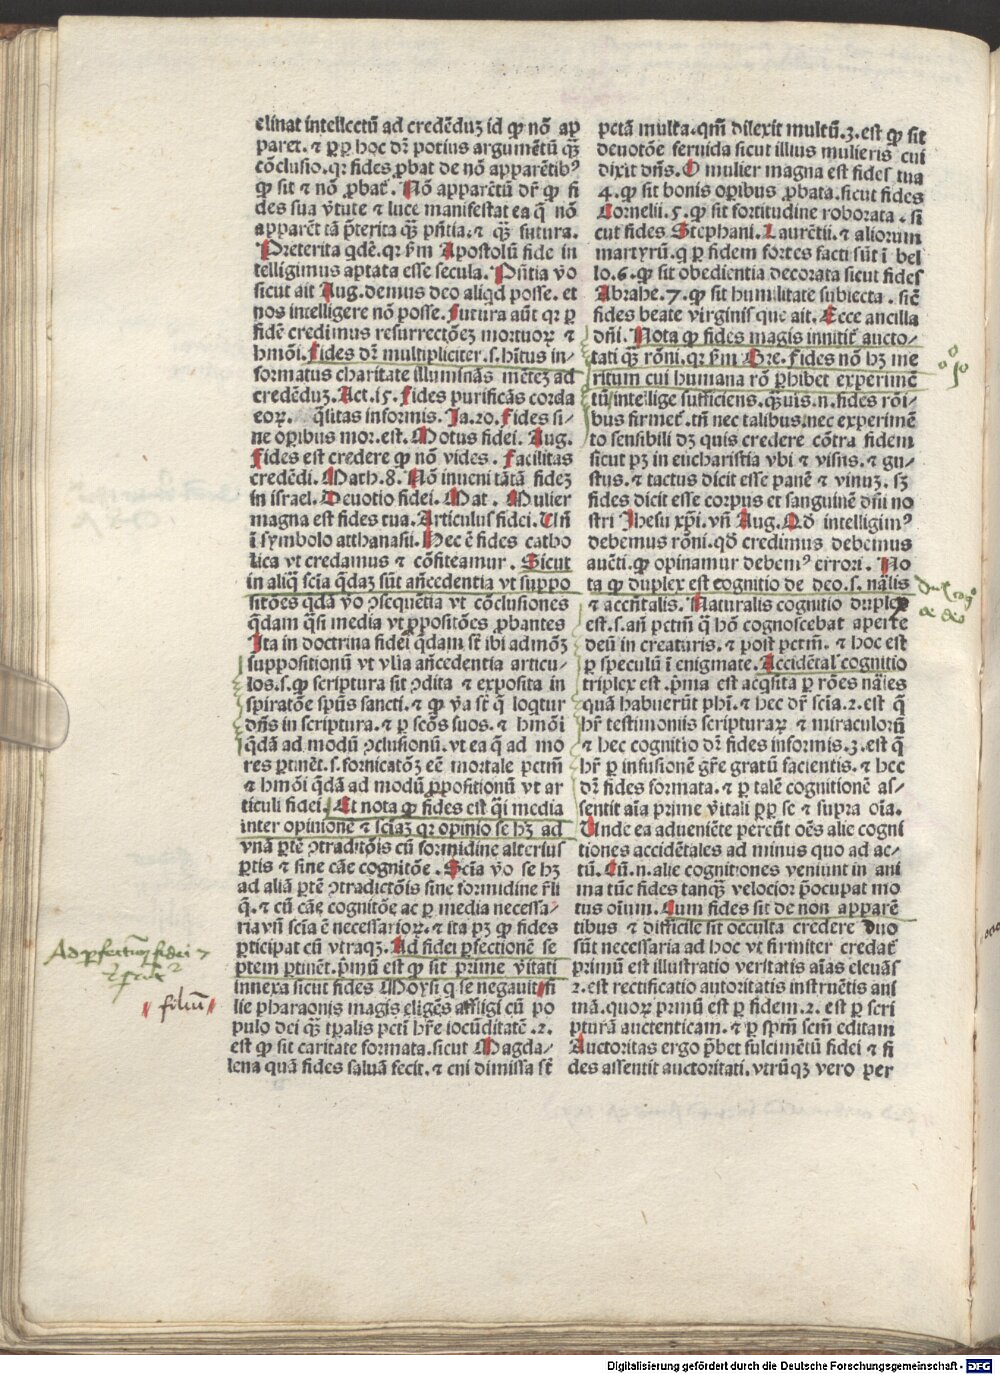 clinat intellectū ad credēduʒ id ꝙ nō ap
paret. ⁊ ꝓpꝑ hoc dr̄ potius argumētū qꝫ
cōclusio. qꝛ fides ꝓbat de nō apparētibꝰ
ꝙ sit ⁊ nō ꝓbat̄. Nō apparētū dr̄ ꝙ fi
des sua v̄tute ⁊ luce manifestat ea q̄ nō
apparēt tā p̄terita qꝫ pn̄tia. ⁊ qꝫ futura.
Preterita qdē. qꝛ ẜm Apostolū fide in
telligimus aptata esse secula. Pn̄tia v̄o
sicut ait Aug. demus deo aliqd posse. et
nos intelligere nō posse. Futura aūt qꝛ ꝑ
fidē credimus resurrectōeʒ mortuoꝝ ⁊
hmōi. Fides dr̄ multipliciter. s. hītus in-
formatus charitate illuminās mēteʒ ad
credēduʒ. Act. 15. Fides purificās corda
eoꝝ. q̄litas informis. Ja. 20. Fides si-
ne oꝑibus mor. est. Motus fidei. Aug.
Fides est credere ꝙ nō vides. Facilitas
credēdi. Math. 8. Nō inueni tātā fideʒ
in israel. Deuotio fidei. Mat. Mulier
magna est fides tua. Articulus fidei. Un̄
ī symbolo atthanasii. Hec ē fides catho
lica vt credamus ⁊ cōfiteamur. Sicut
in aliq̄ scīa q̄daʒ sūt añcedentia vt suppo
sitōes q̄dā v̄o ↄsequētia vt cōclusiones
q̄dam q̄si media vt ꝓpositōes ꝓbantes
Ita in doctrina fidei q̄dam st̄ ibi ad moʒ
suppositionū vt vlīa añcedentia articu-
los. s. ꝙ scriptura sit ↄdita ⁊ exposita in
spiratōe spūs sancti. ⁊ ꝙ v̄a st̄ q̄ loqtur
dn̄s in scriptura. ⁊ ꝑ scōs suos. ⁊ hmōi
q̄dā ad modū ↄclusionū. vt ea q̄ ad mo
res ꝑtinēt. s. fornicatōʒ eē mortale pctm̄
⁊ hmōi q̄dā ad modū ꝓpositionū vt ar
ticuli fidei. Et nota ꝙ fides est q̄i media
inter opinionē ⁊ scīaʒ qꝛ opinio se hʒ ad
vnā ꝑtē ↄtradictōis cū formidine alterius
ꝑtis ⁊ sine cāe cognitōe. Scīa v̄o se hʒ
ad aliā ꝑtē ↄtradictōis sine formidine r̄li
q̄. ⁊ cū cāe cognitōe ac ꝑ media necessa-
ria vn̄ scīa ē necessarioꝝ. ⁊ ita pʒ ꝙ fides
ꝑticipat cū vtraqʒ. Ad fidei ꝑfectionē se
ptem ꝑtinēt. p̄mū est ꝙ sit prime v̄itati
innexa sicut fides Moysi q se negauit fi
lie pharaonis magis eligēs affligi cū po
pulo dei qꝫ tꝑalis pcti hr̄e iocūditatē. 2.
est ꝙ sit caritate formata. sicut Magda-
lena quā fides saluā fecit. ⁊ cui dimissa st̄
Ad perfectum fidei ⁊
filiū
petā multa. qm̄ dilexit multū. 3. est ꝙ sit
deuotōe feruida sicut illius mulieris cui
dixit dn̄s. O mulier magna est fides tua
4. ꝙ sit bonis oꝑibus ꝓbata. sicut fides
Cornelii. 5. ꝙ sit fortitudine roborata. si
cut fides Stephani. Laurētii. ⁊ aliorum
martyrū. q ꝑ fidem fortes facti sūt ī bel
lo. 6. ꝙ sit obedientia decorata sicut fides
Abrahe. 7. ꝙ sit humilitate subiecta. sic̄
fides beate virginis que ait. Ecce ancilla
dn̄i. Nota ꝙ fides magis innitit̄ aucto-
tati qꝫ rōni. qꝛ ẜm Gre. Fides nō hʒ me
ritum cui humana rō p̄hibet experimē
tū intellige sufficiens. quis. n. fides rōi-
bus firmet̄. tn̄ nec talibus. nec experimē
to sensibili dʒ quis credere cōtra fidem
sicut pʒ in eucharistia vbi ⁊ visus. ⁊ gu-
stus. ⁊ tactus dicit esse panē ⁊ vinuʒ. sʒ
fides dicit esse corpus et sanguinē dn̄i no
stri Jhesu xp̄i. vn̄ Aug. Qd̄ intelligimꝰ
debemus rōni. qd̄ credimus debemus
aucti. ꝙ opinamur debemꝰ errori. No
ta ꝙ duplex est cognitio de deo. s. nālis
⁊ accn̄talis. Naturalis cognitio duplex
est. s. an̄ pctm̄ q̄ hō cognoscebat aperte
deū in creaturis. ⁊ post pctm̄. ⁊ hoc est
ꝑ speculū ī enigmate. Accidētal cognitio
triplex est. p̄ma est acqsita ꝑ rōes nāles
quā habuerūt phi. ⁊ hec dr̄ scīa. 2. est q̄
hr̄ testimoniis scripturaꝝ ⁊ miraculorū
⁊ hec cognitio dr̄ fides informis. 3. est q̄
hr̄ ꝑ infusionē gr̄e gratū facientis. ⁊ hec
dr̄ fides formata. ⁊ ꝑ talē cognitionē as-
sentit aīa prime v̄itati ꝓpꝑ se ⁊ supra oīa.
Unde ea adueniēte pereūt oēs alie cogni
tiones accidētales ad minus quo ad ac-
tū. Cū. n. alie cognitiones veniunt in ani
ma tūc fides tanqʒ velocior p̄ocupat mo
tus oīum. Cum fides sit de non apparē
tibus ⁊ difficile sit occulta credere duo
sūt necessaria ad hoc vt firmiter credat̄
primū est illustratio veritatis aīas eleuās
2. est rectificatio autoritatis instruētis ani
mā. quoꝝ primū est ꝑ fidem. 2. est ꝑ scri
pturā auctenticam. ⁊ ꝑ sp̄m scm̄ editam
Auctoritas ergo p̄bet fulcimētū fidei ⁊ fi
des assentit auctoritati. vtrūqʒ vero ꝑer
Digitalisierung gefördert durch die Deutsche Forschungsgemeinschaft - DFG